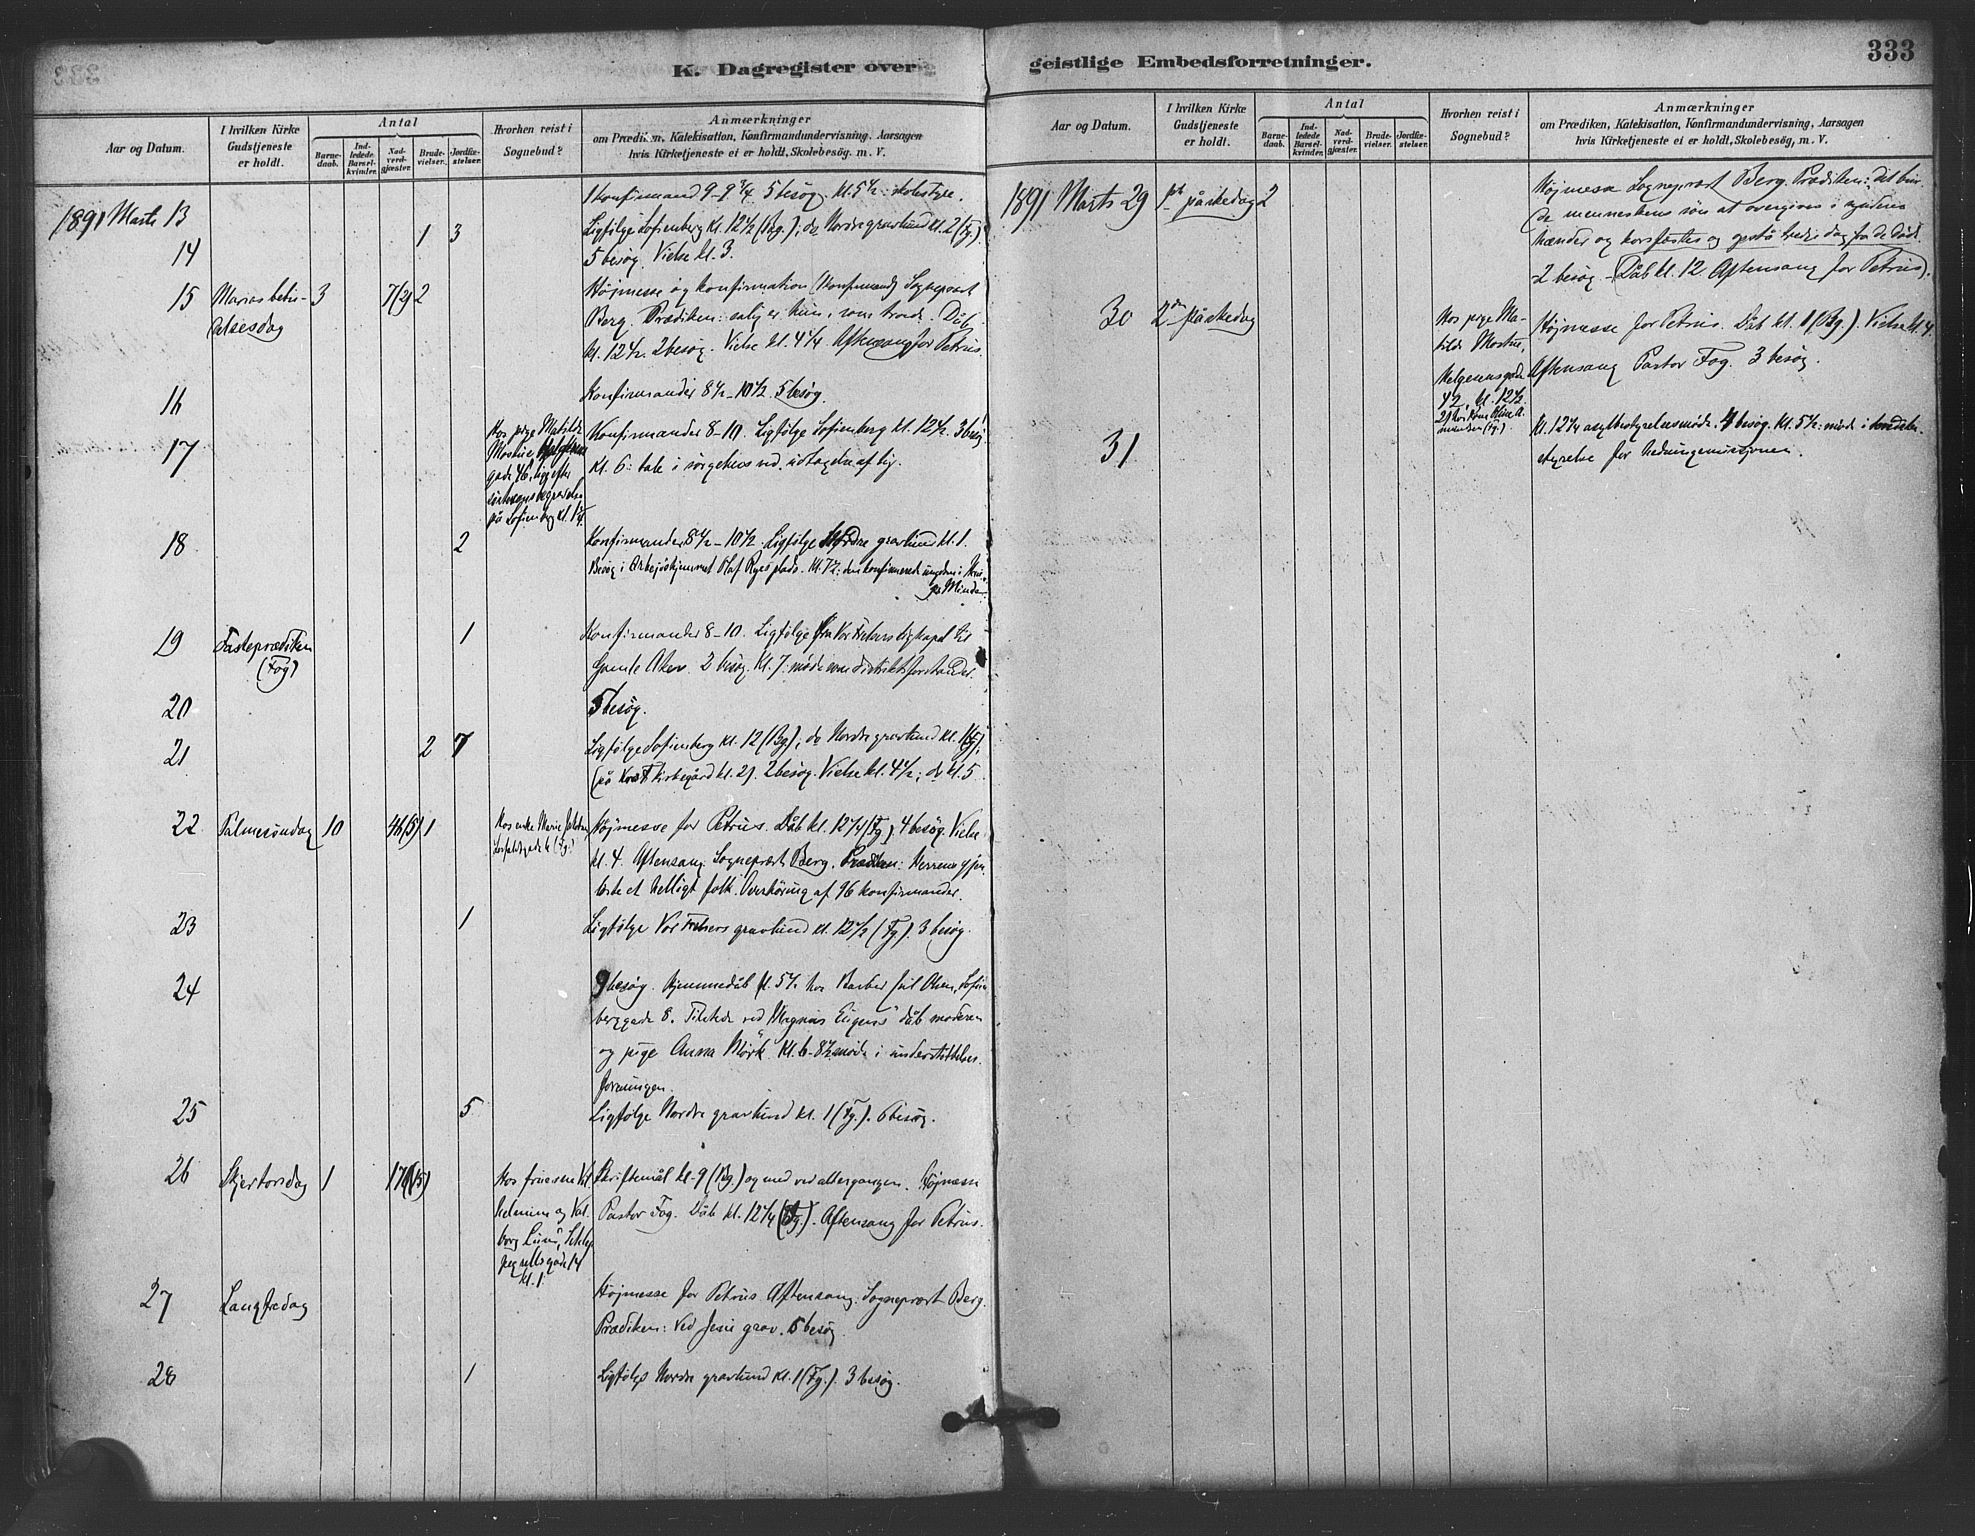 K. Dagregister over geistlige Embedsforretninger.
333
Aar og Datum.
I hvilken Kirke
Gudstjeneste
er holdt.
Antal
Barne-
daab.
Ind-
ledede
Barsel-
kvinder.
Nad-
verd-
gjæster.
Brude-
vielser.
Jordfæ-
stelser.
Hvorhen reist i
Sognebud?
Anmærkninger
om Prædiken, Katekisation, Konfirmandundervisning, Aarsagen
hvis Kirketjeneste ei er holdt, Skolebesøg, m. V.
1891 Marts 13
Konfirmand 9-9 3/4 5 besøg kl. 5 1/2
14
1 3
Ligfølge Sofienberg kl. 12 1/2 (Bg.); do Nordre gravlund kl. 2 (Fg.)
5 besøg. Vielse kl. 3.
15 Marias
3 7(2) 2
Højmesse og konfirmation Sogneprest
Berg. Prædiken: salig er hun, som troede. Dåb
kl. 12 1/2. 2 besøg. Vielse kl. 4 1/4. Aftensang for Petrus.
16
Konfirmander 8 1/2-10 1/2. 5 besøg.
17
Hos pige Matilde
Mostue
gade 46,
på Sofienberg kl.
Konfirmander 8-10. Ligfølge Sofienberg kl. 12 1/2. 3 besøg
kl. 6: tale i sørgehus ved udtagelse af lig.
18
2
Konfirmander 8 1/2-10 1/2. Ligfølge Nordre gravlund kl. 1.
Besøg i Arbejdshjemmet Olaf Ryes plads. Kl. 7 1/2: den konfirmerede ungdom i
Minde
19 Fasteprædiken
(Fog)
1
Konfirmander 8-10. Ligfølge fra Vor Frelsers ligkapel til
Gamle Aker. 2 besøg. Kl. 7: møde
20
5 besøg.
21
2 7
Ligfølge Sofienberg kl. 12 (Bg.); do Nordre gravlund kl. 1 (Fg.),
(på kirkegård kl. 2). 2 besøg. Vielse kl. 4 1/2; do kl. 5
22 Palmesøndag 10 46(5) 1
Hos enke Marie
(Fg.)
Højmesse for Petrus. Dåb kl. 12 1/4 (Fg.) 4 besøg. Vielse
kl. 4. Aftensang: Sogneprest Berg. Prædiken: Herrens
et helligt folk. Overhøring af 96 konfirmander.
23
1
Ligfølge Vor Frelsers gravlund kl. 12 1/2 (Fg.). 3 besøg.
24
9 besøg. Hjemmedåb kl. 5 1/2 hos Barber Olsen, Sofien-
berggade 8. Tilstede ved Magnus dåb moderen
og pige Anna Mörk. Kl. 6-8 1/2 møde i understøttelses-
foreningen.
25
5
Ligfølge Nordre gravlund kl. 1 (Fg.). 6 besøg.
26 Skjertorsdag 1
Hos frøknerne Vil-
helmine og Val-
borg Lund, Schlep-
pegrellsgade 14
kl. 1.
Skriftemål kl. 9 (Bg.) og med ved altergangen. Højmesse
Pastor Fog. Dåb kl. 12 1/4 (Fg.). Aftensang for Petrus.
27 Langfredag
Højmesse for Petrus. Aftensang: Sogneprest Berg.
Prædiken: Ved Jesu grav. 5 besøg.
28
1
Ligfølge Nordre gravlund kl. 1 (Fg.). 3 besøg.
Aar og Datum.
I hvilken Kirke
Gudstjeneste
er holdt.
Antal
Barne-
daab.
Ind-
ledede
Barsel-
kvinder.
Nad-
verd-
gjæster.
Brude-
vielser.
Jordfæ-
stelser.
Hvorhen reist i
Sognebud?
Anmærkninger
om Prædiken, Katekisation, Konfirmandundervisning, Aarsagen
hvis Kirketjeneste ei er holdt, Skolebesøg, m. V.
1891 Marts 29 1st påskedag 2
Højmesse Sogneprest Berg. Prædiken: det bur-
de menneskens søn at overgives i synderes
hænder og korsfæstes og opstå tredie dag fra de døde.
2 besøg - (Dåb kl. 12. Aftensang for Petrus).
30 2den påskedag
Hos pige Ma-
tilde Mostue,
Helgesensgade
42, kl. 12 1/2.
Højmesse for Petrus. Dåb kl. 1 (Bg.). Vielse kl. 4.
Aftensang Pastor Fog. 3 besøg.
31
Kl. 12 1/4 asylbestyrelsesmøde. 4 besøg. Kl. 5 1/2 møde i
styrelse for hedningemissionen.